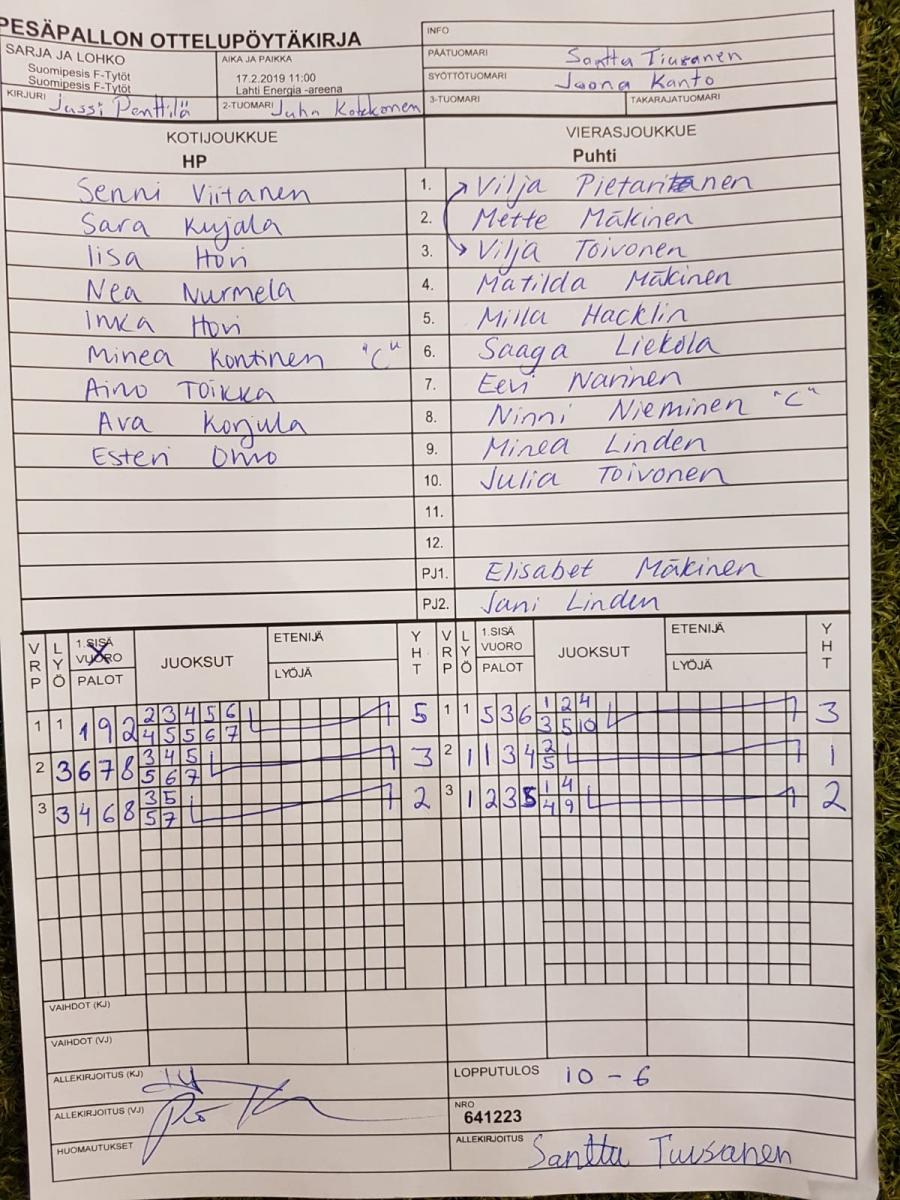 PESÄPALLON OTTELUPÖYTÄKIRJA
INFO
SARJA JA LOHKO
Suomipesis F-Tytöt
Suomipesis F-Tytöt
AIKA JA PAIKKA
17.2.2019 11:00
Lahti Energia -areena
PÄÄTUOMARI Santtu Tiusanen
SYÖTTÖTUOMARI Joona Kanto
KIRJURI Jussi Penttilä
2-TUOMARI Juhn
3-TUOMARI
TAKARAJATUOMARI
KOTIJOUKKUE
HP
VIERASJOUKKUE
Puhti
Senni Viitanen 1. Vilja
Sara Kujala 2. Mette Mäkinen
Iisa Hovi 3. Vilja Toivonen
Nea Nurmela 4. Matilda Mäkinen
Inka Hovi 5. Milla Hacklin
Minea Kontinen "C" 6. Saaga Liekola
Aino Toikka 7. Eevi Narinen
Ava Korjula 8. Ninni Nieminen "C"
Esteri Ohvo 9. Minea Linden
10. Julia Toivonen
11.
12.
PJ1. Elisabet Mäkinen
PJ2. Jani Linden
VRP LYÖ 1.SISÄ VUORO X PALOT JUOKSUT ETENIJÄ LYÖJÄ YHT VRP LYÖ 1.SISÄ VUORO PALOT JUOKSUT ETENIJÄ LYÖJÄ YHT
1 1 1 9 2 2 3 4 5 6 5 1 1 5 3 6 1 2 4 3
4 5 5 6 7 3 5 10
2 3 6 7 8 3 4 5 3 2 1 1 3 4 2 1
5 6 7 5
3 3 4 6 8 3 5 2 3 1 2 3 5 1 4 2
5 7 4 9
VAIHDOT (KJ)
VAIHDOT (VJ)
ALLEKIRJOITUS (KJ)
LOPPUTULOS 10 - 6
ALLEKIRJOITUS (VJ)
NRO
641223
HUOMAUTUKSET
ALLEKIRJOITUS Santtu Tiusanen